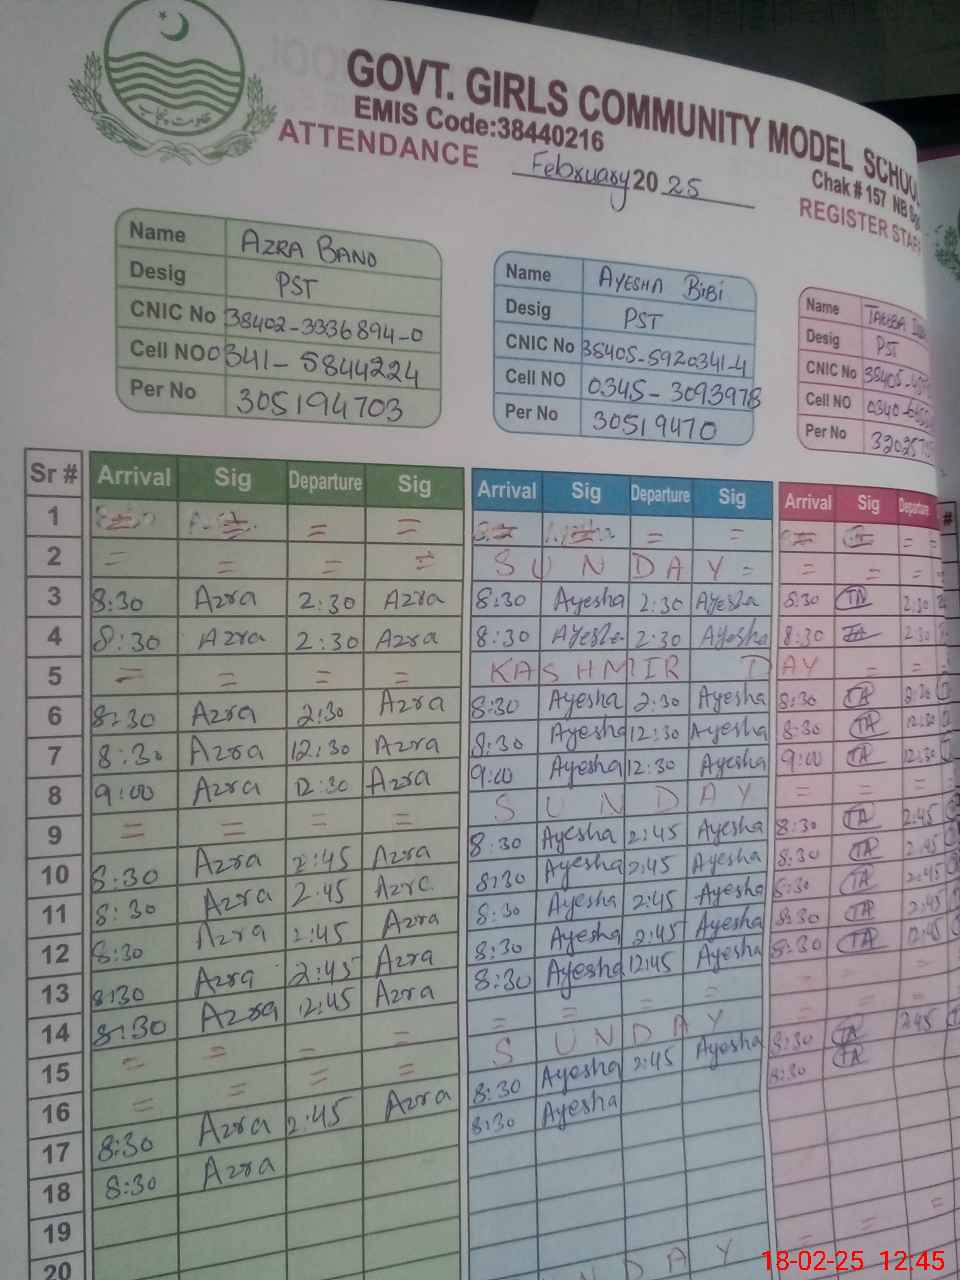 GOVT. GIRLS COMMUNITY MODEL SCHOOL
EMIS Code:38440216
Chak # 157 NB
ATTENDANCE February 2025 REGISTER STAFF
Name AZRA BANO
Desig PST
CNIC No 38402-3336894-0
Cell NO 0341-5844224
Per No 305194703
Name AYESHA BIBI
Desig PST
CNIC No 38405-5920341-4
Cell NO 0345-3093978
Per No 30519470
Name
Desig PST
CNIC No
Cell NO
Per No
Sr # Arrival Sig Departure Sig Arrival Sig Departure Sig Arrival Sig Departure #
1 = = = = = = = = = = = =
2 = = = = SUNDAY = = = =
3 8:30 Azra 2:30 Azra 8:30 Ayesha 2:30 Ayesha 8:30 TA 2:30
4 8:30 Azra 2:30 Azra 8:30 Ayesha 2:30 Ayesha 8:30 TA 2:30
5 = = = = KASHMIR DAY = =
6 8:30 Azra 2:30 Azra 8:30 Ayesha 2:30 Ayesha 8:30 TA 2:30
7 8:30 Azra 12:30 Azra 8:30 Ayesha 12:30 Ayesha 8:30 TA 12:30
8 9:00 Azra 12:30 Azra 9:00 Ayesha 12:30 Ayesha 9:00 TA 12:30
9 = = = = SUNDAY = = =
10 8:30 Azra 2:45 Azra 8:30 Ayesha 2:45 Ayesha 8:30 TA 2:45
11 8:30 Azra 2:45 Azra 8:30 Ayesha 2:45 Ayesha 8:30 TA 2:45
12 8:30 Azra 2:45 Azra 8:30 Ayesha 2:45 Ayesha 8:30 TA 2:45
13 8:30 Azra 2:45 Azra 8:30 Ayesha 2:45 Ayesha 8:30 TA 2:45
14 8:30 Azra 12:45 Azra 8:30 Ayesha 12:45 Ayesha 8:30 TA 12:45
15 = = = = = = = = = = =
16 = = = = SUNDAY = = =
17 8:30 Azra 2:45 Azra 8:30 Ayesha 2:45 Ayesha 8:30 TA 2:45
18 8:30 Azra 8:30 Ayesha 8:30 TA
19
20 NDAY = = =
18-02-25 12:45